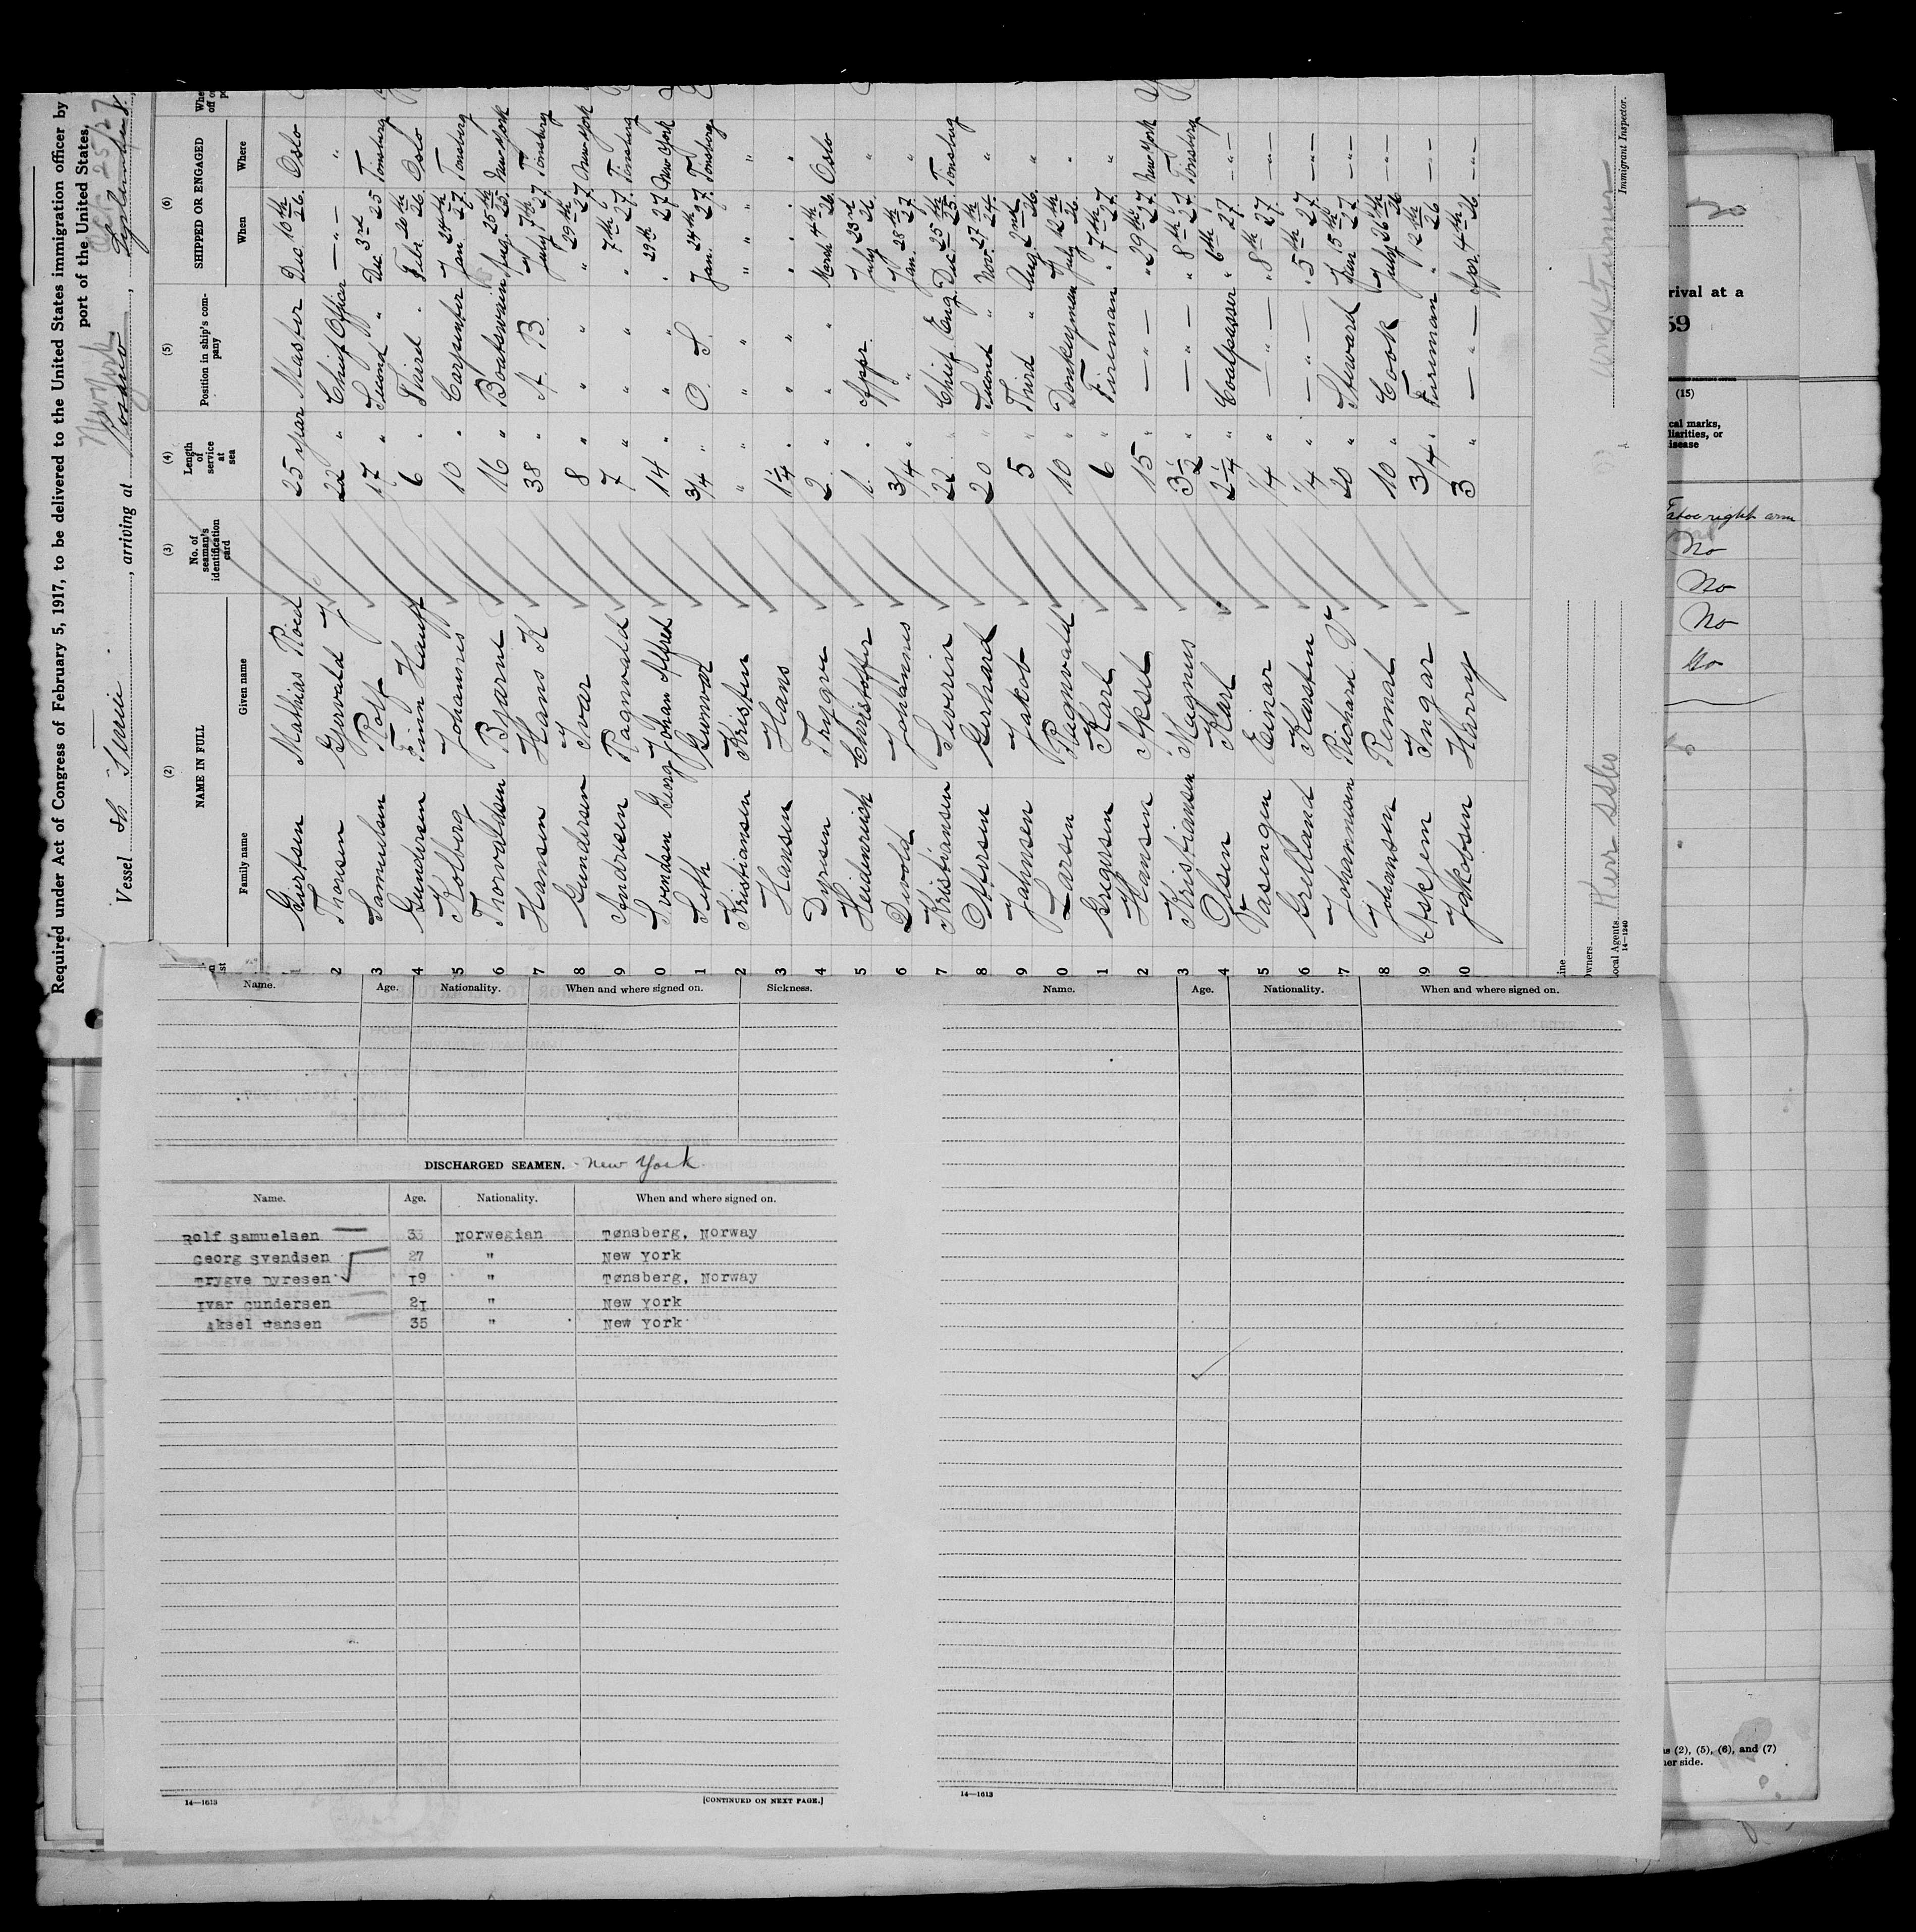 Required under Act of Congress of February 5, 1917, to be delivered to the United States immigration officer by
port of the United States,
Vessel , arriving at New York
(2) (3) (4) (5) (6)
NAME IN FULL No. of seaman's identification card Length of service at sea Position in ship's company SHIPPED OR ENGAGED
Family name Given name When Where
Mathias 25 year Master Dec 10th 26. Oslo
2 22 " Chief Officer — " — "
3 Samuelsen Rolf 17 " Second " Dec 3rd 25 Tonsberg
4 Gundersen Finn Hauff 6 " Third " Feb. 26. Oslo
5 Kolberg Johannes 10 " Carpenter Jan 24th 27. Tonsberg
6 Thorvaldsen Bjarne 16 " Boatswain Aug. 25th 25. New-York
7 Hansen Hans K 38 " A. B. July 7th 27 Tonsberg
8 Gundersen Ivar 8 " " " 29th 27 New-York
9 Andresen Ragnvald 7 " " " 7th 27. Tonsberg
0 Svendsen Georg Johan Alfred 14 " " " 29th 27 New York
1 Seth Gunvor 3/4 " O. S. Jan. 24th 27. Tonsberg
2 Kristiansen Kristen " " " " "
3 Hansen Hans 1 1/4 " " " "
4 Dyresen Trygve 2 " " March 4th 26. Oslo
5 Heidenreich Christoffer 1. " Appr. July 23rd 26. "
6 Devold Johannes 3/4 " " Jan. 28th 27. "
7 Kristiansen Severin 22 " Chief Eng. Dec 25th 25. Tonsberg
8 Ottersen Gerhard 20 " Second " Nov. 27th 24. "
9 Jahnsen Jakob 5 " Third " Aug. 2nd 26. "
0 Larsen Ragnvald 10 " Donkeyman July 12th 26. "
1 Gregersen Karl 6 " Fireman " 7th 27. "
2 Hansen Aksel 15 " — " — " 29th 27. New York
3 Kristiansen Magnus 3 1/2 " — " — " 8th 27 Tonsberg
4 Olsen Karl 2 1/4 " Coalpasser " 6th 27 — " —
5 Einar 1/4 " — " — " 8th 27 — " —
6 Grelland Karsten 1/4 " — " — " 5th 27 — " —
7 Johannesen Richard V 20 " Steward 15th 27 — " —
8 Johansen Remal 10 " Cook July 26th 26 — " —
9 Askjem Ingar 3/4 " Fireman " 12th 26 — " —
0 Jakobsen Harry 3 " — " — Apr. 4th 26. — " —
Immigrant Inspector.
Owners
Local Agents Kerr SSLes
14—1240
rival at a
59
(15)
cal marks,
liarities, or
isease
right arm
No
No
No
No
s (2), (5), (6), and (7)
her side.
Name. Age. Nationality. When and where signed on. Sickness.
DISCHARGED SEAMEN. - New York
Name. Age. Nationality. When and where signed on.
Rolf Samuelsen 33 Norwegian Tønsberg, Norway
Georg Svendsen 27 " New York
Trygve Dyresen 19 " Tønsberg, Norway
Ivar Gundersen 21 " New York
Aksel Hansen 35 " New York
14—1613 [CONTINUED ON NEXT PAGE.]
Name. Age. Nationality. When and where signed on.
14—1613